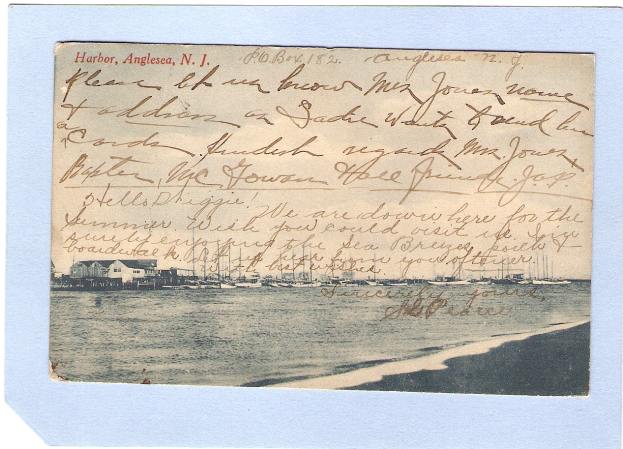 Harbor, Anglesea, N. J.
P.O. Box 182. Anglesea N. J.
Please let us know Mrs Jones name
& address as Sadie wants to send her
a Card. Kindest regards Mrs Jones
Baxter, Mc Gowan & all friends.
Hello
We are down here for the
summer wish you could visit us. Am
surely enjoying the sea Breezes,
boardwalk. Let us hear from you
Sincerely yours,
Pearce